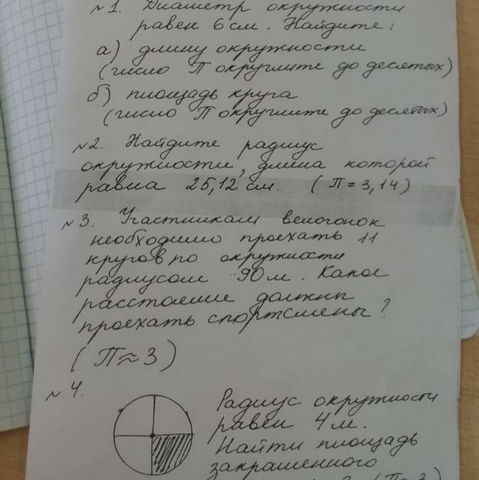 №1. Диаметр окружности
равен 6 см. Найдите:
а) длину окружности
(число П округлите до десятых)
б) площадь круга
(число П округлите до десятых)
№2. Найдите радиус
окружности, длина которой
равна 25,12 см. (П=3,14)
№3. Участникам велогонок
необходимо проехать 11
кругов по окружности
радиусом 90 м. Какое
расстояние должны
проехать спортсмены?
(П≈3)
№4.
Радиус окружности
равен 4 м.
Найти площадь
закрашенного